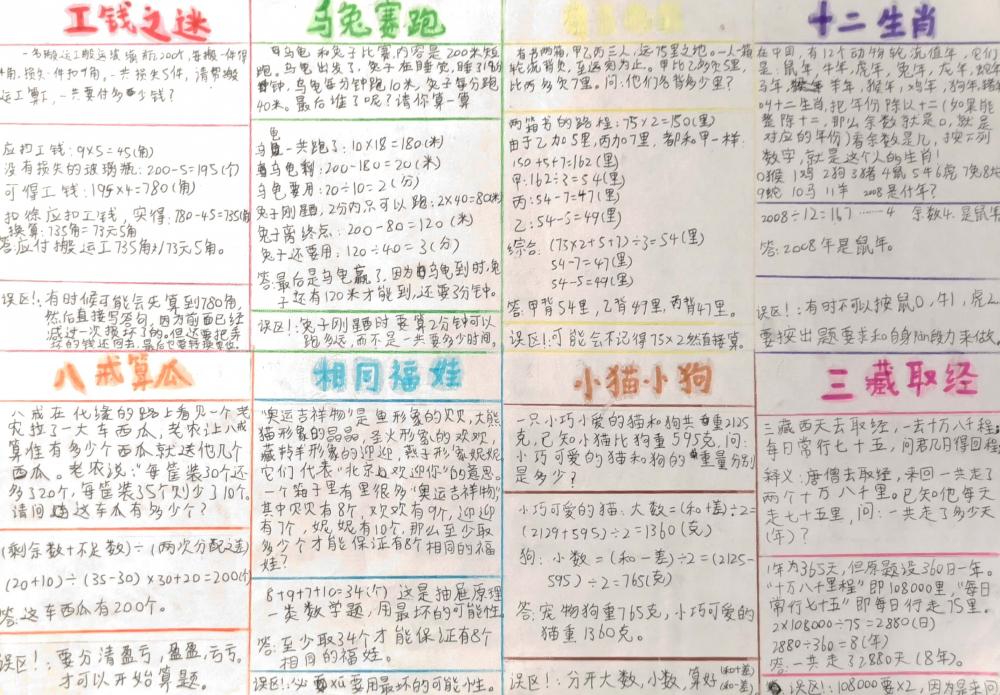 工钱之迷
一名搬运工搬运玻璃瓶200个,每搬一件得
4角,损失一件扣9角,一共损失5件,请帮搬
运工算工,一共要付多少钱?
应扣工钱:9×5=45(角)
没有损失的玻璃瓶:200-5=195(个)
可得工钱:195×4=780(角)
扣除应扣工钱,实得:780-45=735(角)
换算:735角=73元5角
答:应付搬运工735角/73元5角。
误区!:有时候可能会先算到780角,
然后直接写答句,因为前面已经
减过一次损坏了的。但还要把弄
坏的钱还回去,最后也要转换单位
乌兔赛跑
乌龟和兔子比赛,内容是200米短
跑。乌龟出发了,兔子在睡觉,睡了18分
钟,乌龟每分钟跑10米,兔子每分跑
40米。最后谁了呢?请你算一算
乌龟一共跑了:10×18=180(米)
乌龟剩:200-180=20(米)
乌龟要用:20÷10=2(分)
兔子刚醒,2分内只可以跑:2×40=80(米)
兔子离终点:200-80=120(米)
兔子还要用:120÷40=3(分)
答:最后是乌龟赢了,因为乌龟到时,兔
子还有120米才能到,还要3分钟。
误区!:兔子刚醒时要算2分钟可以
跑多远,而不是一共要多少时间。
有书两箱,甲乙丙三人,运75里之地。一人一箱
轮流背负,至远处为止。甲比乙多负5里,
比丙多负7里。问:他们各背多少里?
两箱书的路程:75×2=150(里)
由于乙加5里,丙加7里,都和甲一样:
150+5+7=162(里)
甲:162÷3=54(里)
丙:54-7=47(里)
乙:54-5=49(里)
综合:(75×2+5+7)÷3=54(里)
54-7=47(里)
54-5=49(里)
答:甲背54里,乙背49里,丙背47里。
误区!可能会不记得75×2然直接算。
十二生肖
在中国,有12个动物轮流值年,它们
是:鼠年、牛年、虎年、兔年、龙年、蛇年
马年、羊年、猴年、鸡年、狗年、猪
叫十二生肖,把年份除以十二(如果能
整除十二,那么余数就是0,就是
对应的年份)看余数是几,按下列
数字,就是这个人的生肖!
0猴 1鸡 2狗 3猪 4鼠 5牛 6虎 7兔 8龙
9蛇 10马 11羊 2008是什年?
2008÷12=167……4 余数4.是鼠年
答:2008年是鼠年。
误区!:有时不可以按鼠0,牛1,虎2
要按出题要求和自身能力来做。
八戒算瓜
八戒在化缘的路上看见一个老
农拉了一大车西瓜,老农让八戒
算性有多少个西瓜就送他几个
西瓜。老农说:“每筐装30个还
多了20个,每筐装35个则少了10个。
请问这车瓜有多少个?
(剩余数+不足数)÷(两次分配之差)
(20+10)÷(35-30)×30+20=200(个)
答:这车西瓜有200个。
误区!:要分清盈亏,盈盈,亏亏。
才可以开始算题。
相同福娃
“奥运吉祥物”是鱼形象的贝贝,大熊
猫形象的晶晶,圣火形象的欢欢,
藏羚羊形象的迎迎,燕子形象妮妮,
它们代表“北京欢迎你”的意思。
一个箱子里有里很多“奥运吉祥物”
其中贝贝有8个,欢欢有9个,迎迎
有7个,妮妮有10个,那么至少取
多少个才能保证有8个相同的福
娃?
8+9+7+10=34(个) 这是抽屉原理
一类数学题,用最坏的可能性
答:至少取34个才能保证有8个
相同的福娃。
误区!:必要要用最坏的可能性。
小猫小狗
一只小巧小爱的猫和狗共重2125
克,已知小猫比狗重595克,问:
小巧可爱的猫和狗的重量分别
是多少?
小巧可爱的猫:大数=(和+差)÷2=
(2129+595)÷2=1360(克)
狗:小数=(和-差)÷2=(2125-
595)÷2=765(克)
答:宠物狗重765克,小巧可爱的
猫重1360克。
误区!:分开大数,小数,算好(和+差)
(和-差)
三藏取经
三藏西天去取经,一去十万八千程
每日常行七十五,问君几月得回程
释义:唐僧去取经,来回一共走了
两个十万八千里。已知他每天
走七十五里,问:一共走了多少天
(年)?
1年为365天但原题设360日一年。
“十万八千里程”即108000里,“每日
常行七十五”即每日行走75里。
2×108000÷75=2880(日)
2880÷360=8(年)
答:一共走了2880天(8年)。
误区!:108000要×2,因为是来回